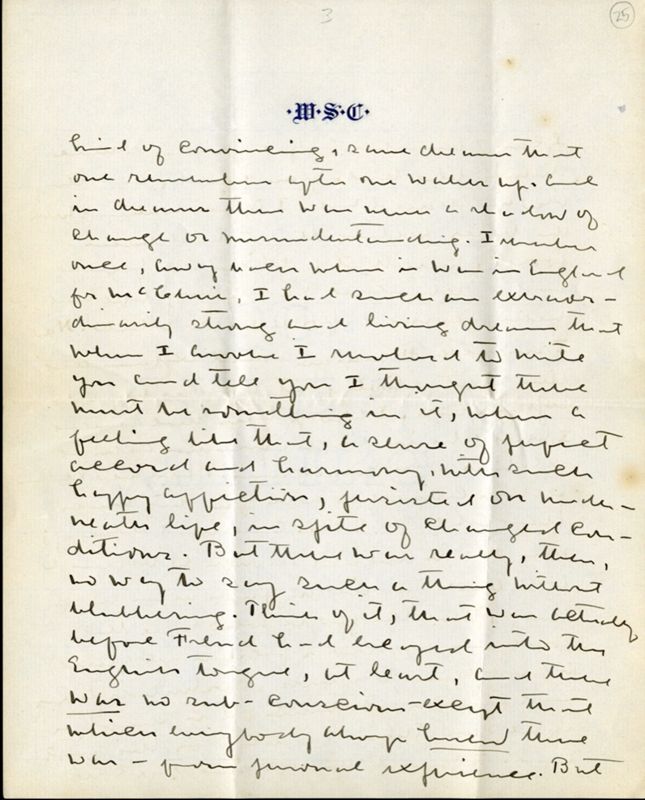 3
25
·W·S·C·
kind of convincing, sane dreams that
one remembers after one wakes up. And
in dreams there was never a shadow of
change or misunderstanding. I remember
once, away when I was in England
for McClure, I had such an extraor-
dinarily strong and living dream that
when I awoke I resolved to write
you and tell you I thought there
must be something in it, when a
feeling like that, a sense of perfect
accord and harmony, with such
happy affection, persisted on under-
neath life, in spite of changed con-
ditions. But there was really, then,
no way to say such a thing without
blubbering. Think of it, that was actually
before Freud had escaped into the
English tongue, at least, and there
was no sub-conscious except that
which everybody always knew there
was - from personal experience. But